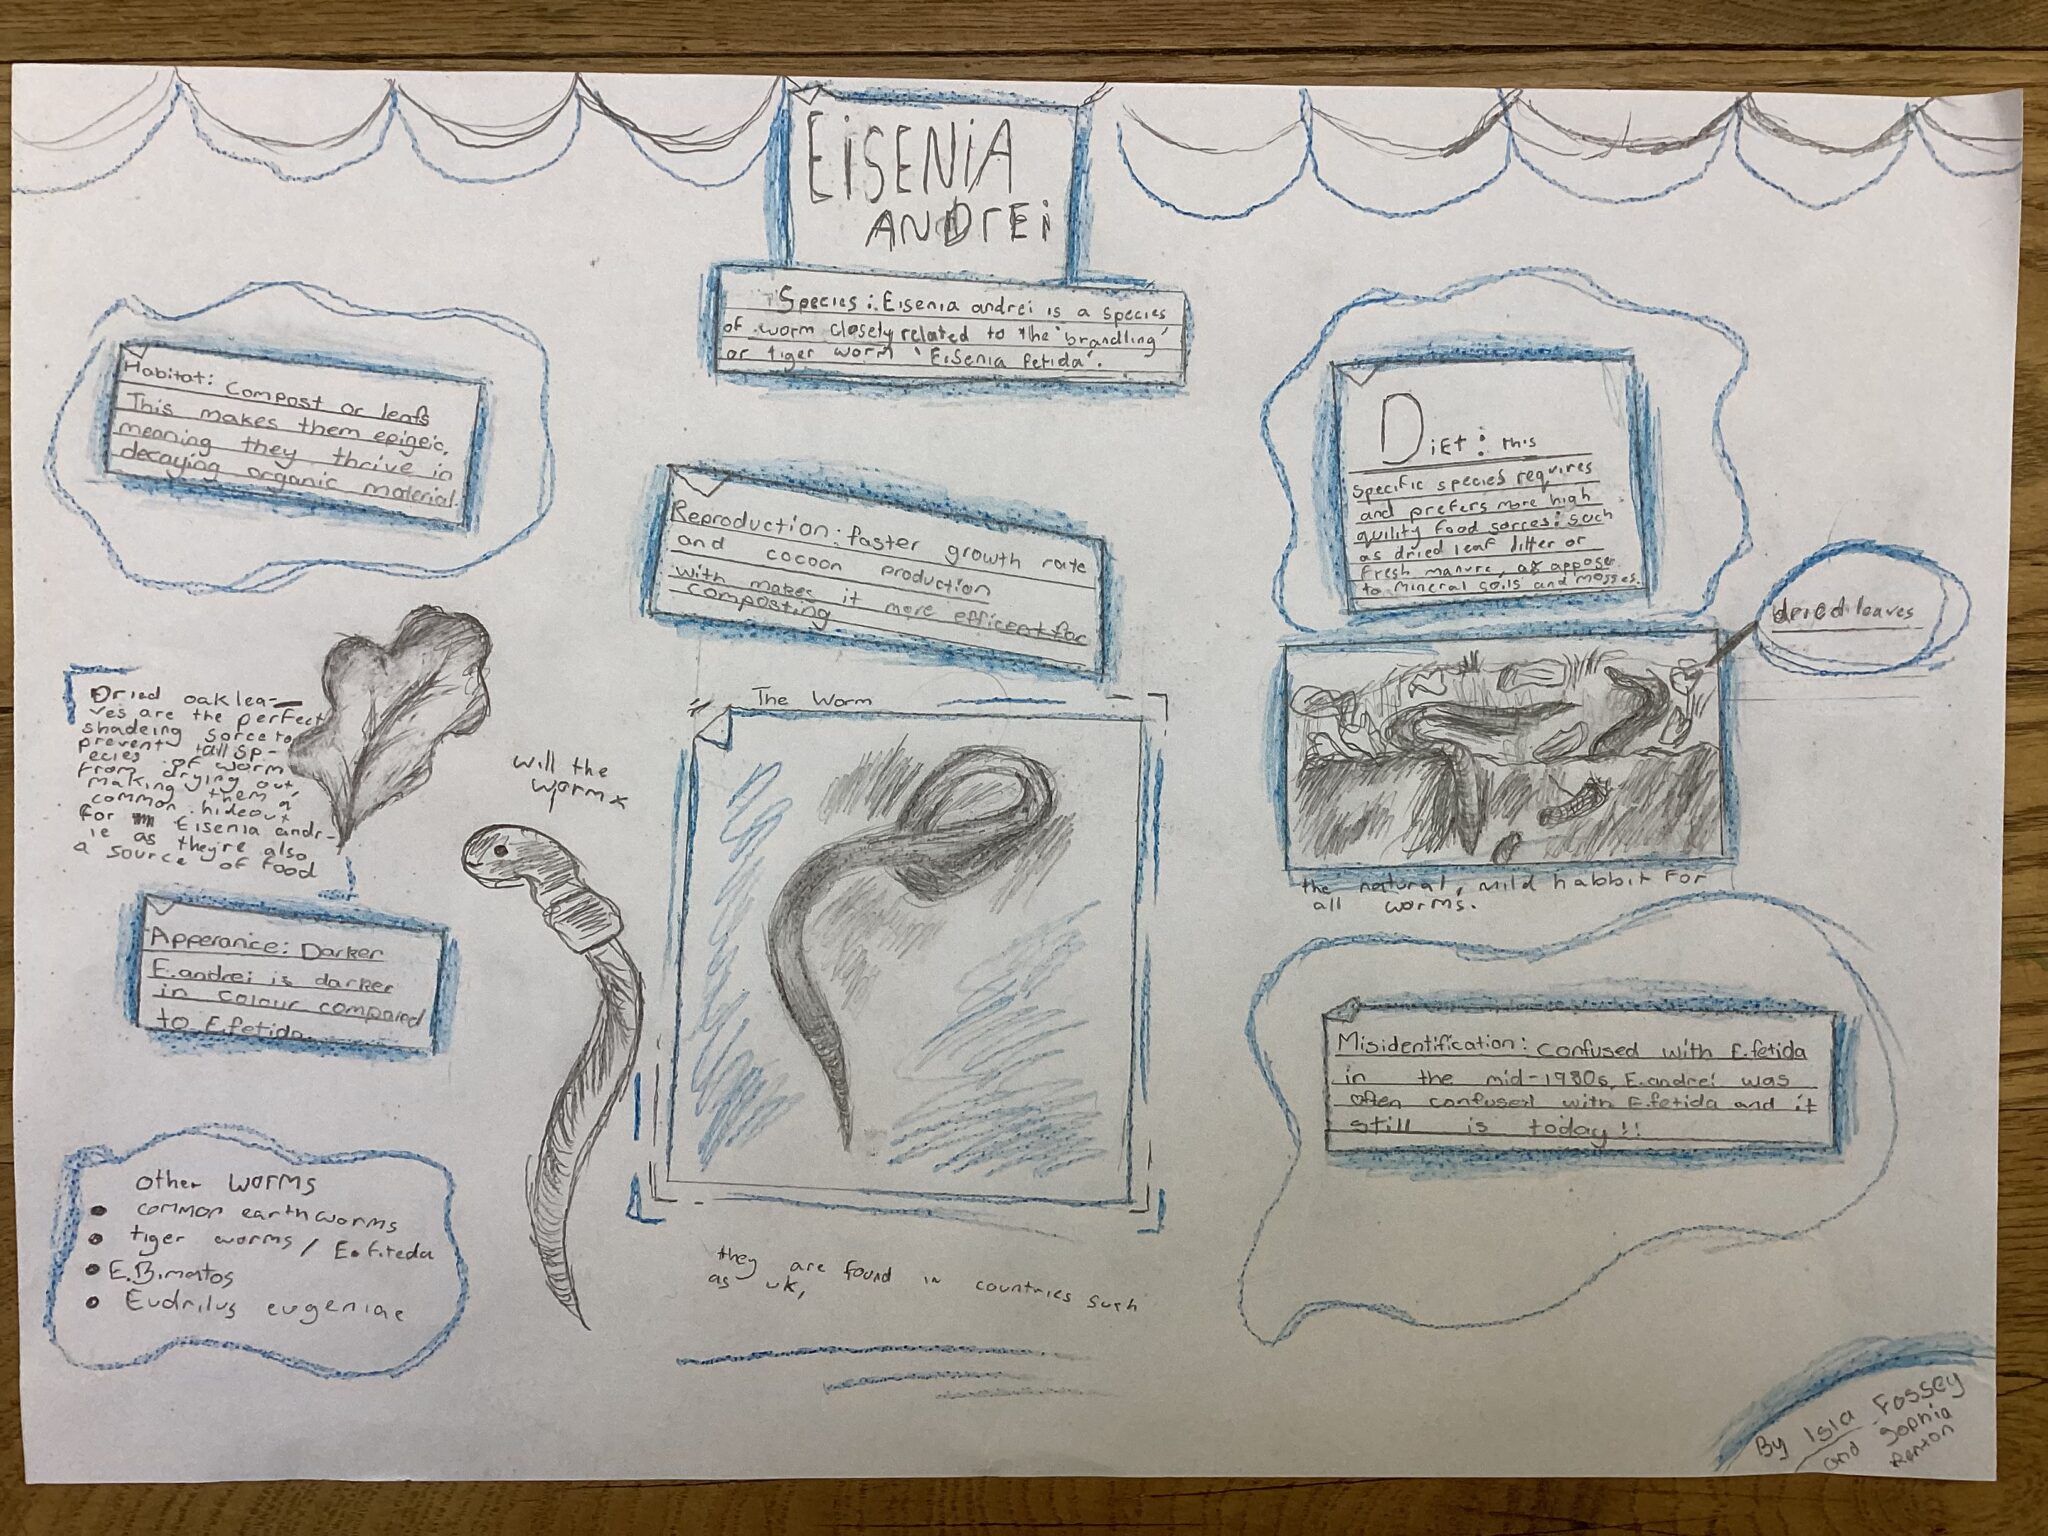 EiSENiA
ANDrEi
Species: Eisenia andrei is a species
of worm closely related to the 'brandling'
or tiger worm 'Eisenia fetida'.
Habitat: Compost or leafs
This makes them epigeic,
meaning they thrive in
decaying organic material.
Reproduction: faster growth rate
and cocoon production
with makes it more efficent for
composting
DiEt: this
Specific species requires
and prefers more high
quility food sorces: such
as dried leaf litter or
fresh manure, as apposer
to mineral soils and mosses.
dried leaves
Dried oak lea-
ves are the perfect
shadeing sorce to
prevent all sp-
ecies of worm
from drying out,
making them a
common hideout
for Eisenia andr-
ie as they're also
a source of food
will the
worm x
The Worm
the natural, mild habbit for
all worms.
Apperance: Darker
E.andrei is darker
in colour compared
to E.fetida.
Misidentification: Confused with E.fetida
in the mid-1980s, E.andrei was
often confused with E.fetida and it
still is today!!
other worms
• common earthworms
• tiger worms / E.fiteda
• E.B.matos
• Eudrilus eugeniae
they are found in countries such
as uk,
By Isla Fossey
and Sophia
Renton